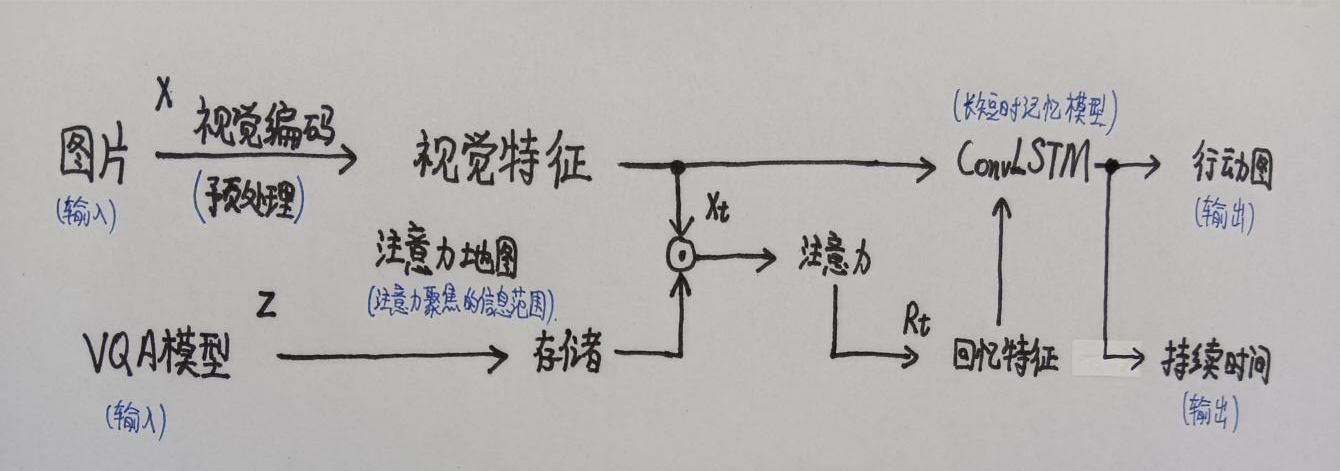 X
视觉编码
(预处理)
图片
(输入)
视觉特征
(长短时记忆模型)
ConvLSTM
行动图
(输出)
Xt
注意力地图
(注意力聚焦的信息范围).
注意力
Z
VQA模型
(输入)
存储者
Rt
回忆特征
持续时间
(输出)